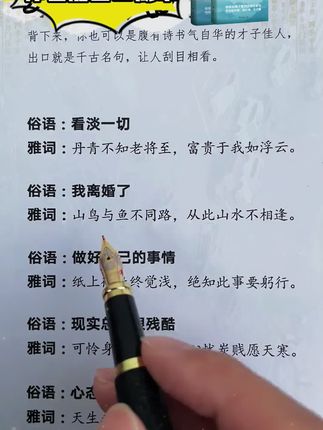 背下来，你也可以是腹有诗书气自华的才子佳人，
出口就是千古名句，让人刮目相看。
俗语：看淡一切
雅词：丹青不知老将至，富贵于我如浮云。
俗语：我离婚了
雅词：山鸟与鱼不同路，从此山水不相逢。
俗语：做好 己的事情
雅词：纸上 终觉浅，绝知此事要躬行。
俗语：现实总 残酷
雅词：可怜身 炭贱愿天寒。
俗语：心态
雅词：天生